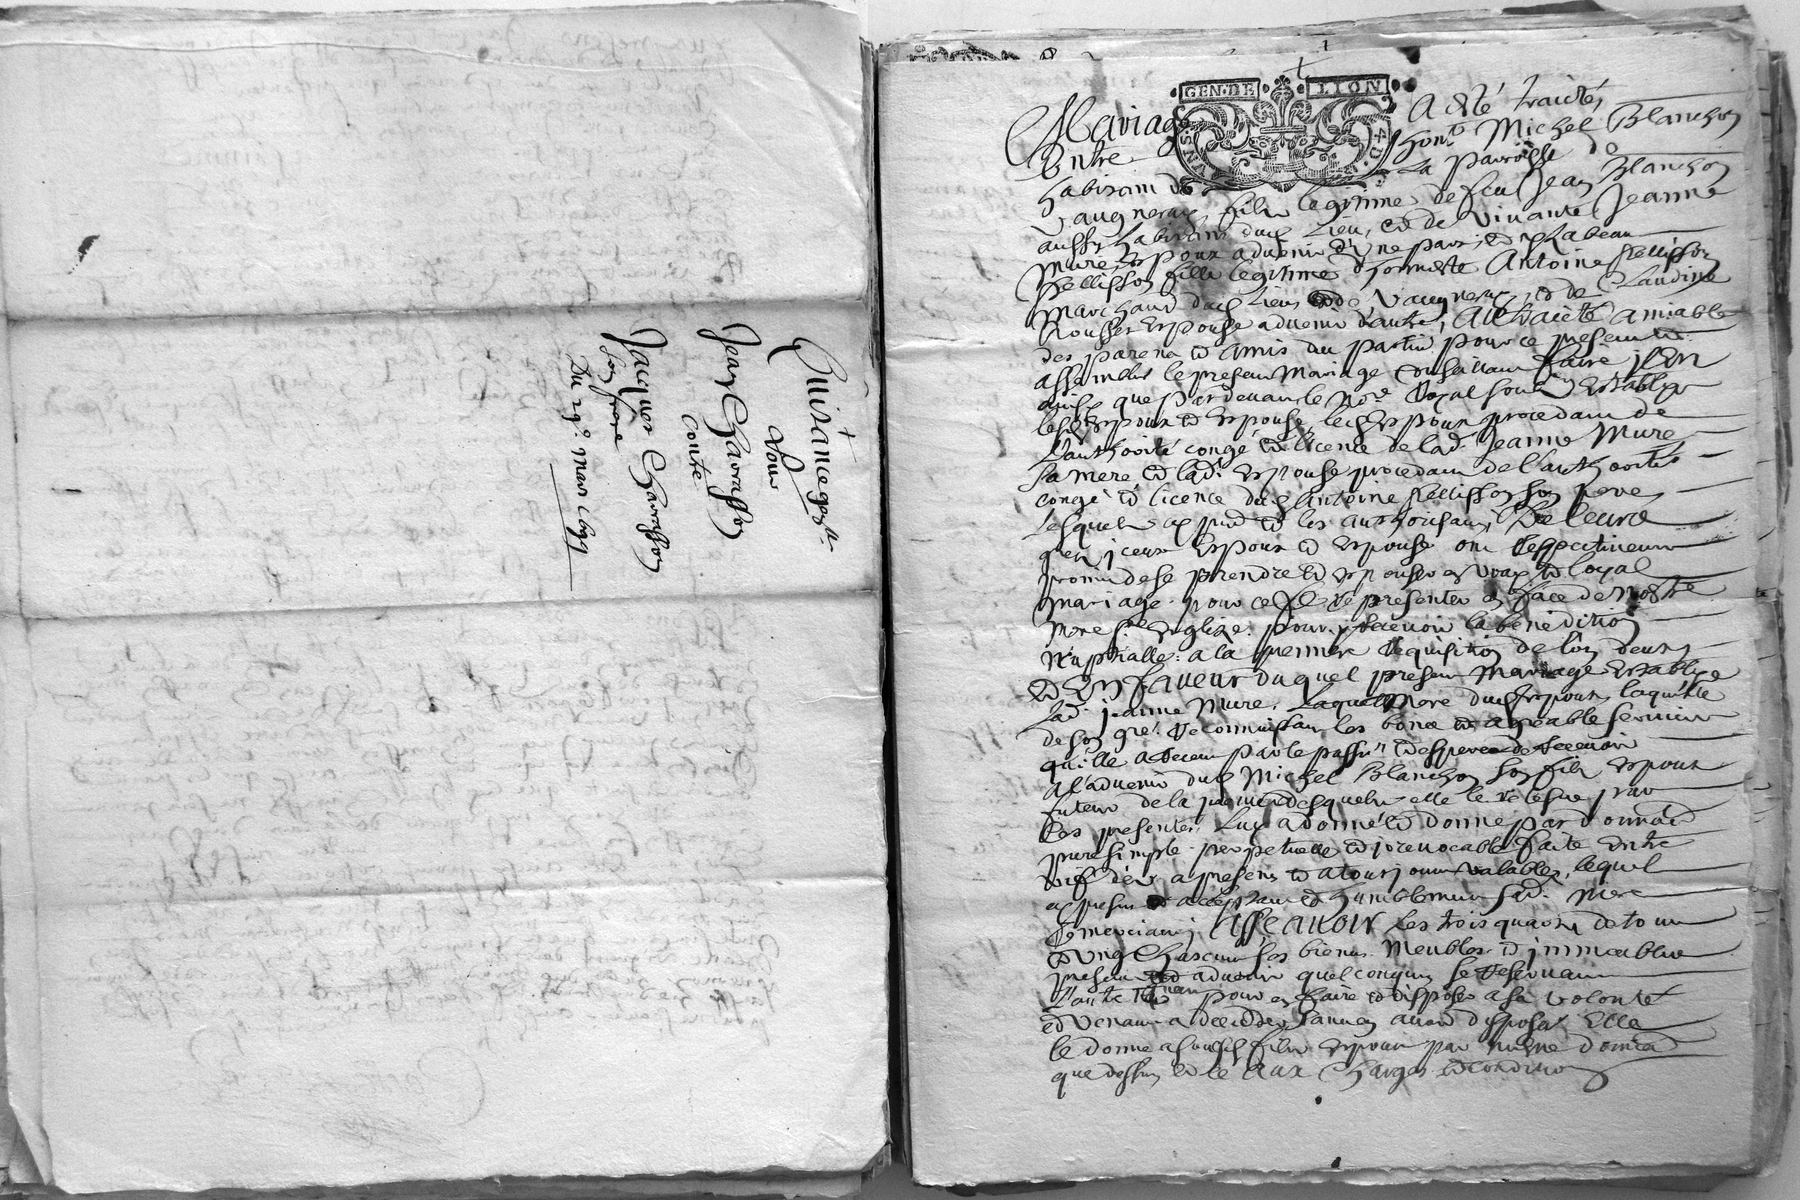 Quittance gen.lle
Pour
Jean Chavasson
contre
Jacques Chavasson
son frere
Du 29e mars 1697
GEN·DE LION
4·D·
Mariage A esté traicté,
Entre hon.te Michel Blanchon
habitant de la parroisse de
Vaugneray, filz legitime de feu Jean Blanchon
aussy habitant dud. Lieu, et de vivante Jeanne
Mure, espoux advenir d'une part, et Ysabeau
Pellisson fille legitime d'honneste Antoine Pellisson
Marchand dud. lieu de Vaugneray, et de Claudine
Rousset espouse advenir d'autre, Au traicté amiable
des parens et amis des parties pour ce present
assemblés le present mariage
que pardevant le No.re Royal soub.né establys
lesd. espoux et espouse, led. espoux procedant de
l'authorité congé et licence de lad. Jeanne Mure,
sa mere et lad. espouse procedant de l'authorité
congé et licence dud. Antoine Pellisson son pere
lesquels et les authorisant, De leurs
grez iceux espoux et espouse ont respectivement
promis de se prendre et espouser en vray et loyal
mariage pour ce se représenter en face de nostre
mere s.te Esglize pour y recevoir la benediction
Nuptialle a la premiere requisition de l'un deux,
et En faveur duquel present mariage establye
lad. jeanne Mure, Laquelle mere dud. espoux, laquelle
de son gré reconnoissant les bons et agreable services
qu'elle a receu par le passé et espere de recevoir
a l'advenir dud. Michel Blanchon son filz espoux
futeur de la preuve desquels elle le releve par
ces presentes, Luy a donné et donne par donnaõn
pure simple perpetuelle et irrevocable faite entre
vifz dez a present et a tousjours valables, lequel
present et acceptant et humblement sad. mere
remerciant; Assavoir les trois quartz de tous
et ung chascuns ses biens Meubles et immeubles
present et advenir quelconques se reservant
l'autre quart pour en faire et disposer a sa volonté
et venant a decceder sans en avoir disposé Elle
le donne a sond. filz espoux par mesme donnaõn
que dessus et ce Aux Charges et condition